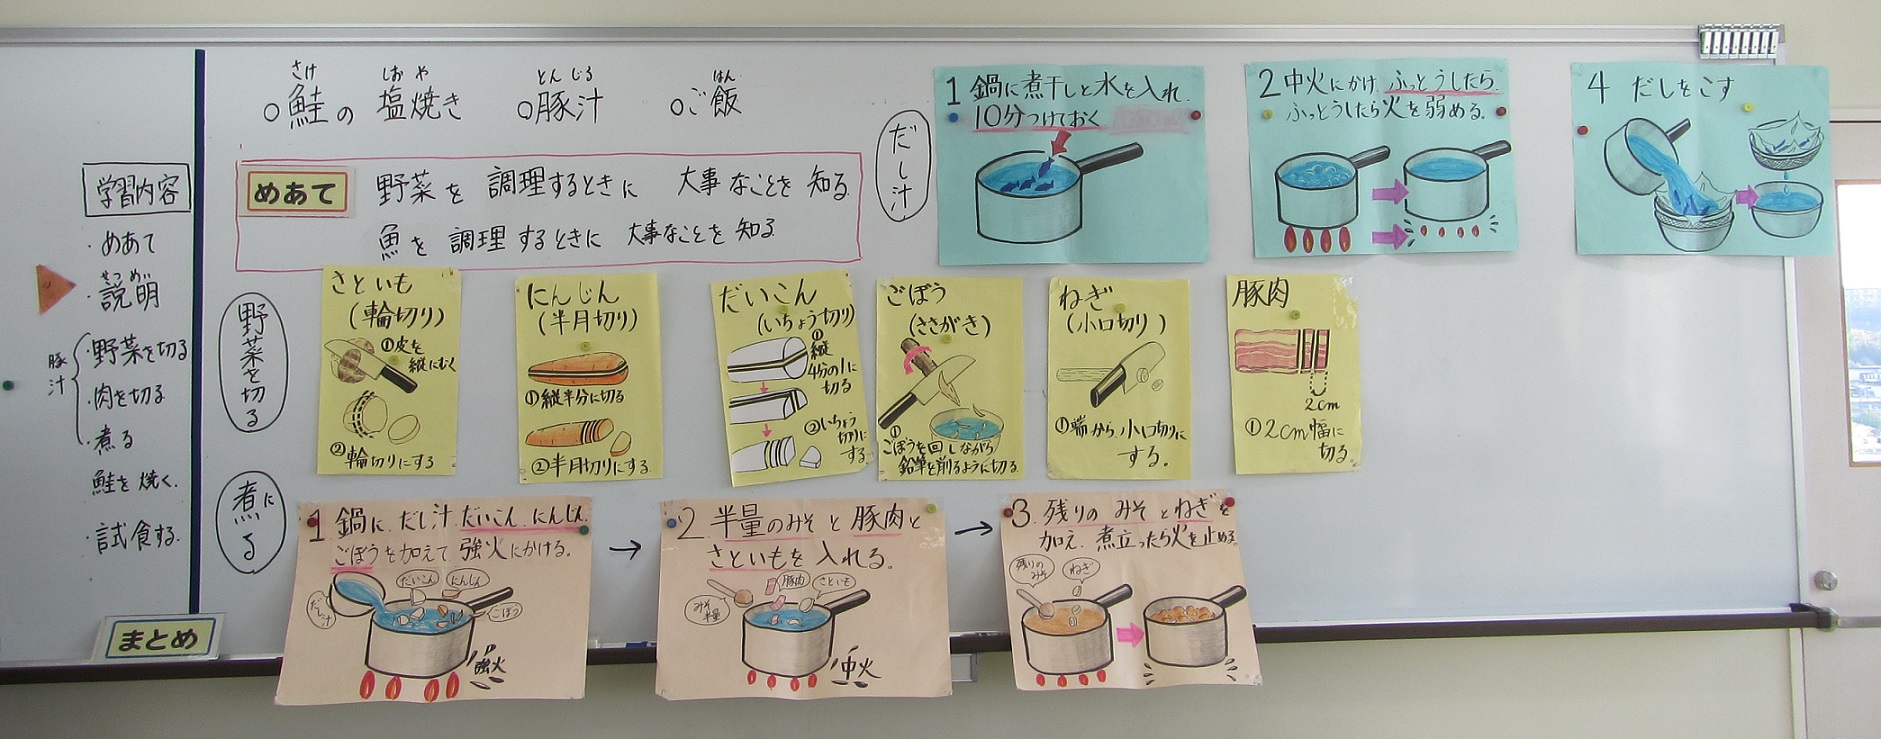 学習内容
・めあて
せつめい
・説明
豚汁
・野菜を切る
・肉を切る
・煮る
鮭を焼く.
・試食する.
まとめ
さけ しおや とんじる はん
○鮭の塩焼き ○豚汁 ○ご飯
めあて
野菜を調理するときに 大事なことを知る
魚を調理するときに 大事なことを知る
だし汁
1 鍋に煮干しと水を入れ
10分つけておく
2 中火にかけ ふっとうしたら
ふっとうしたら火を弱める。
4 だしをこす
野菜を切る
さといも
(輪切り)
①皮を
縦にむく
②輪切りにする
にんじん
(半月切り)
①縦半分に切る
②半月切りにする
だいこん
(いちょう切り)
①縦
4分の1に
切る
②いちょう
切りに
する。
ごぼう
(ささがき)
①
ごぼうを回しながら
鉛筆を削るように切る
ねぎ
(小口切り)
①端から小口切りに
する。
豚肉
2cm
①2cm幅に
切る。
煮にる
1 鍋に、だし汁、だいこん、にんじん、
ごぼうを加えて強火にかける。
だし汁
だいこん
にんじん
ごぼう
強火
→
2 半量のみそと豚肉と
さといもを入れる。
みそ
半量
豚肉
さといも
中火
→
3. 残りのみそとねぎを
加え、煮立ったら火を止める。
残りの
みそ
ねぎ